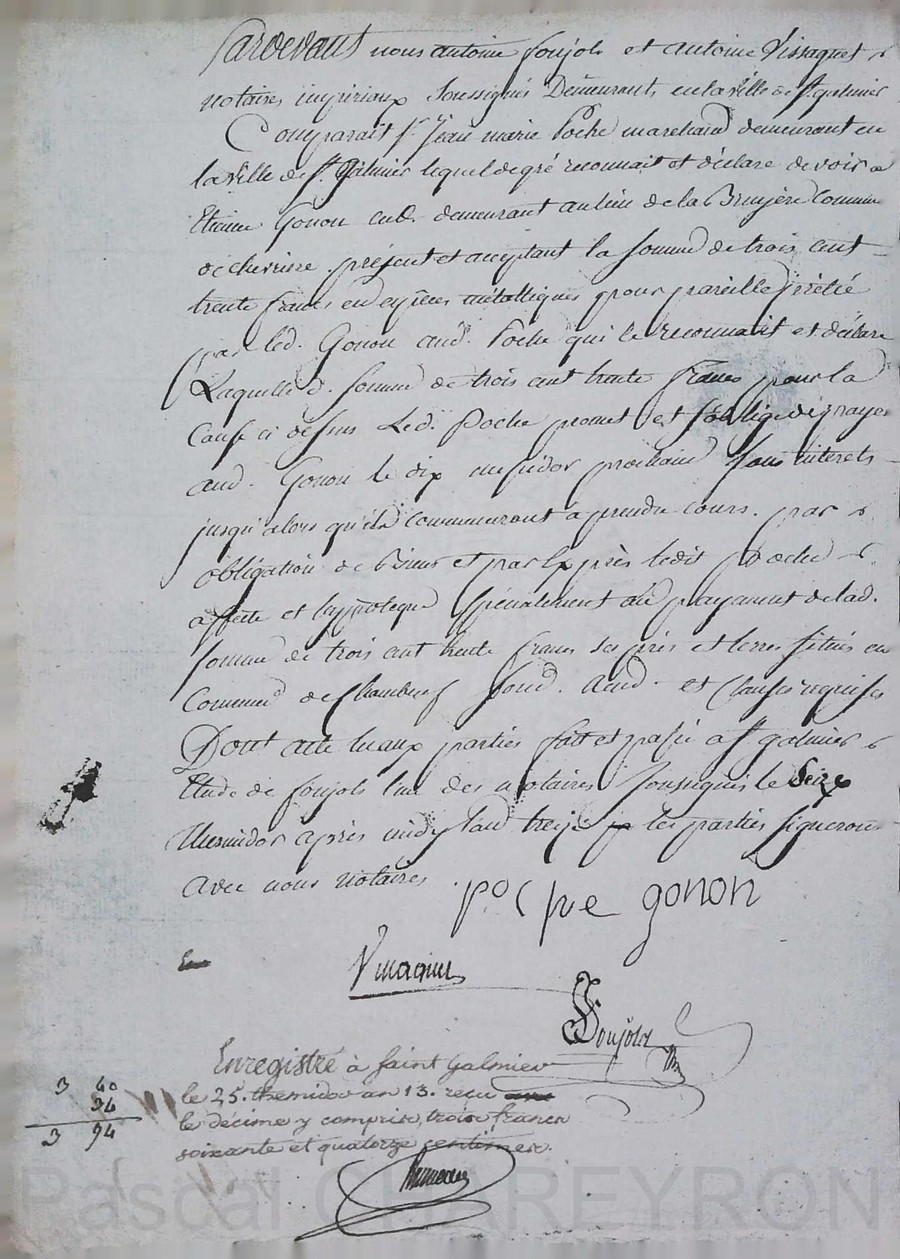 Pardevant nous antoine foujols et antoine Vissaguet
notaires impériaux Soussignés Demeurants en la ville de St. galmier
Comparait Sr. Jean marie Poche marchand demeurant en
la ville de St. Galmier lequel de gré reconnait et déclare devoir a
Etienne Gonon cult. demeurant au lieu de la Bruyère Commune
de chevriere présent et acceptant la somme de trois cent
trente francs en espèces métalliques pour pareille prêtée
par led. Gonon aud. Poche qui le reconnait et déclare
Laquelle d. somme de trois cent trente francs pour la
Cause ci dessus Led. Poche promet et s'oblige de payer
aud. Gonon le dix messidor prochain sans interets
jusqu'alors qu'ils commenceront a prendre cours. par
obligation de biens et par exprès ledit Poche
affecte et hypoteque spécialement au payement de lad.
somme de trois cent trente francs ses prés et terres situés en
Commune de Chambeuf Soud. Aud. et Clauses requises
Dont acte lu aux parties fait et passé a St galmier
Etude de foujols l'un des notaires soussignés le Seize
thermidor après midy l'an treize les parties signeront
avec nous notaires
poche gonon
Foujols
Enregistré à Saint Galmier
le 25. themidor an 13. reçu
le décime y compris, trois francs
soixante et quatorze centimes.
3 40
34
3 74
Pascal CHAREYRON